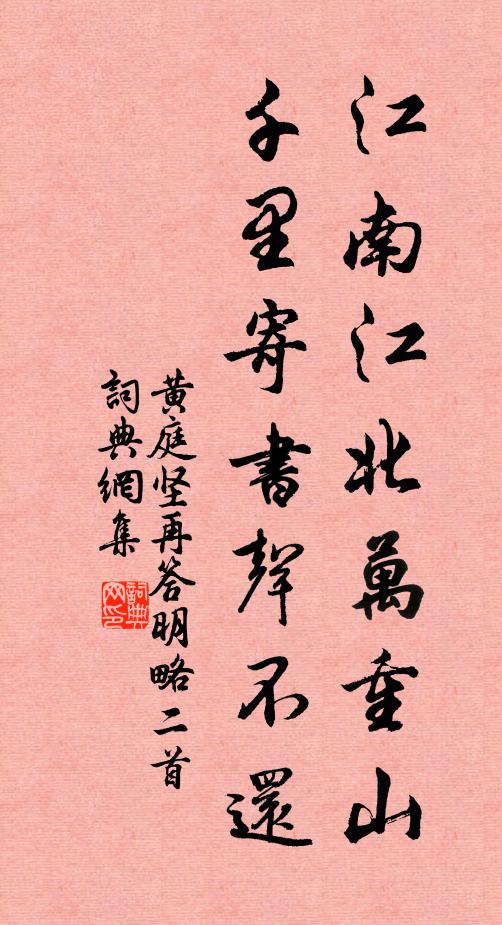 江南江北萬重山
千里寄書聲不還
黃庭坚再答明略二首
詞典網集
詞典网印